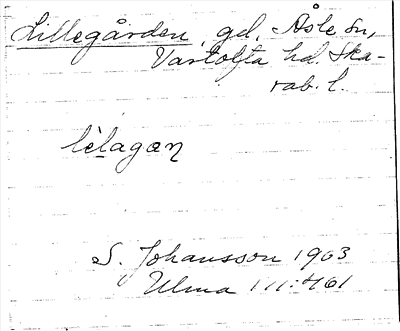 Lillegården, gd, Åsle sn,
Vartofta hd. Ska-
rab. l.
lèlagạn
S. Johansson 1903
Ulma 111:461